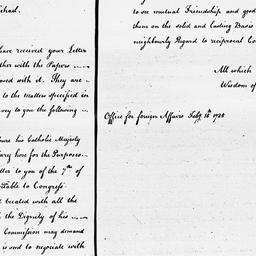 chad.
have received your Letter
ther with the Papers
oved with it. They are
to the matters specified in
vey to you the following
ure his Catholic Majesty
ary here for the Purposes
tter to you of the 7th of
table to Congress
t treated with all the
the Dignity of his
Commission may demand
is sent to negotiate with
to see mutual Friendship and good
them on the solid and lasting Basis
neighbourly Regard to reciprocal Co
All which
Wisdom of
Office for foreign Affairs Feby